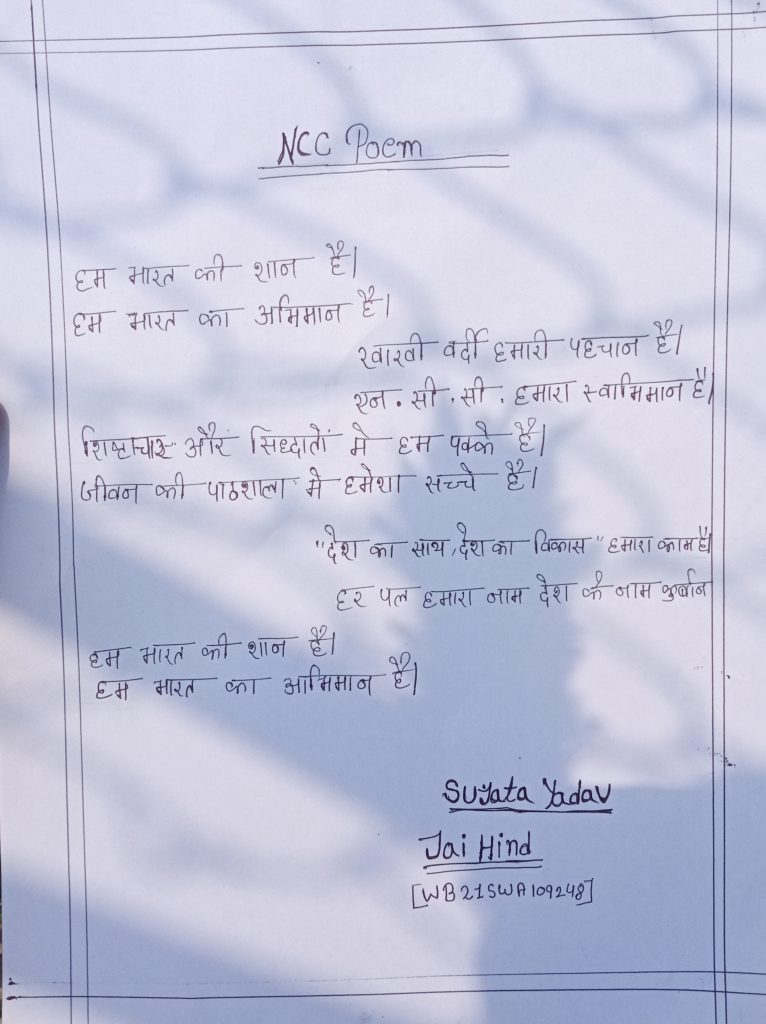 NCC Poem
हम भारत की शान है।
हम भारत का अभिमान है।
खाखी वर्दी हमारी पहचान है।
एन. सी. सी. हमारा स्वाभिमान है।
शिष्टाचार और सिध्दातों मे हम पक्के है।
जीवन की पाठशाला मे हमेशा सच्चे है।
"देश का साथ, देश का विकास" हमारा काम है।
हर पल हमारा नाम देश के नाम कुर्बान
हम भारत की शान है।
हम भारत का अभिमान है।
Sujata Yadav
Jai Hind
[WB21SWA109248]